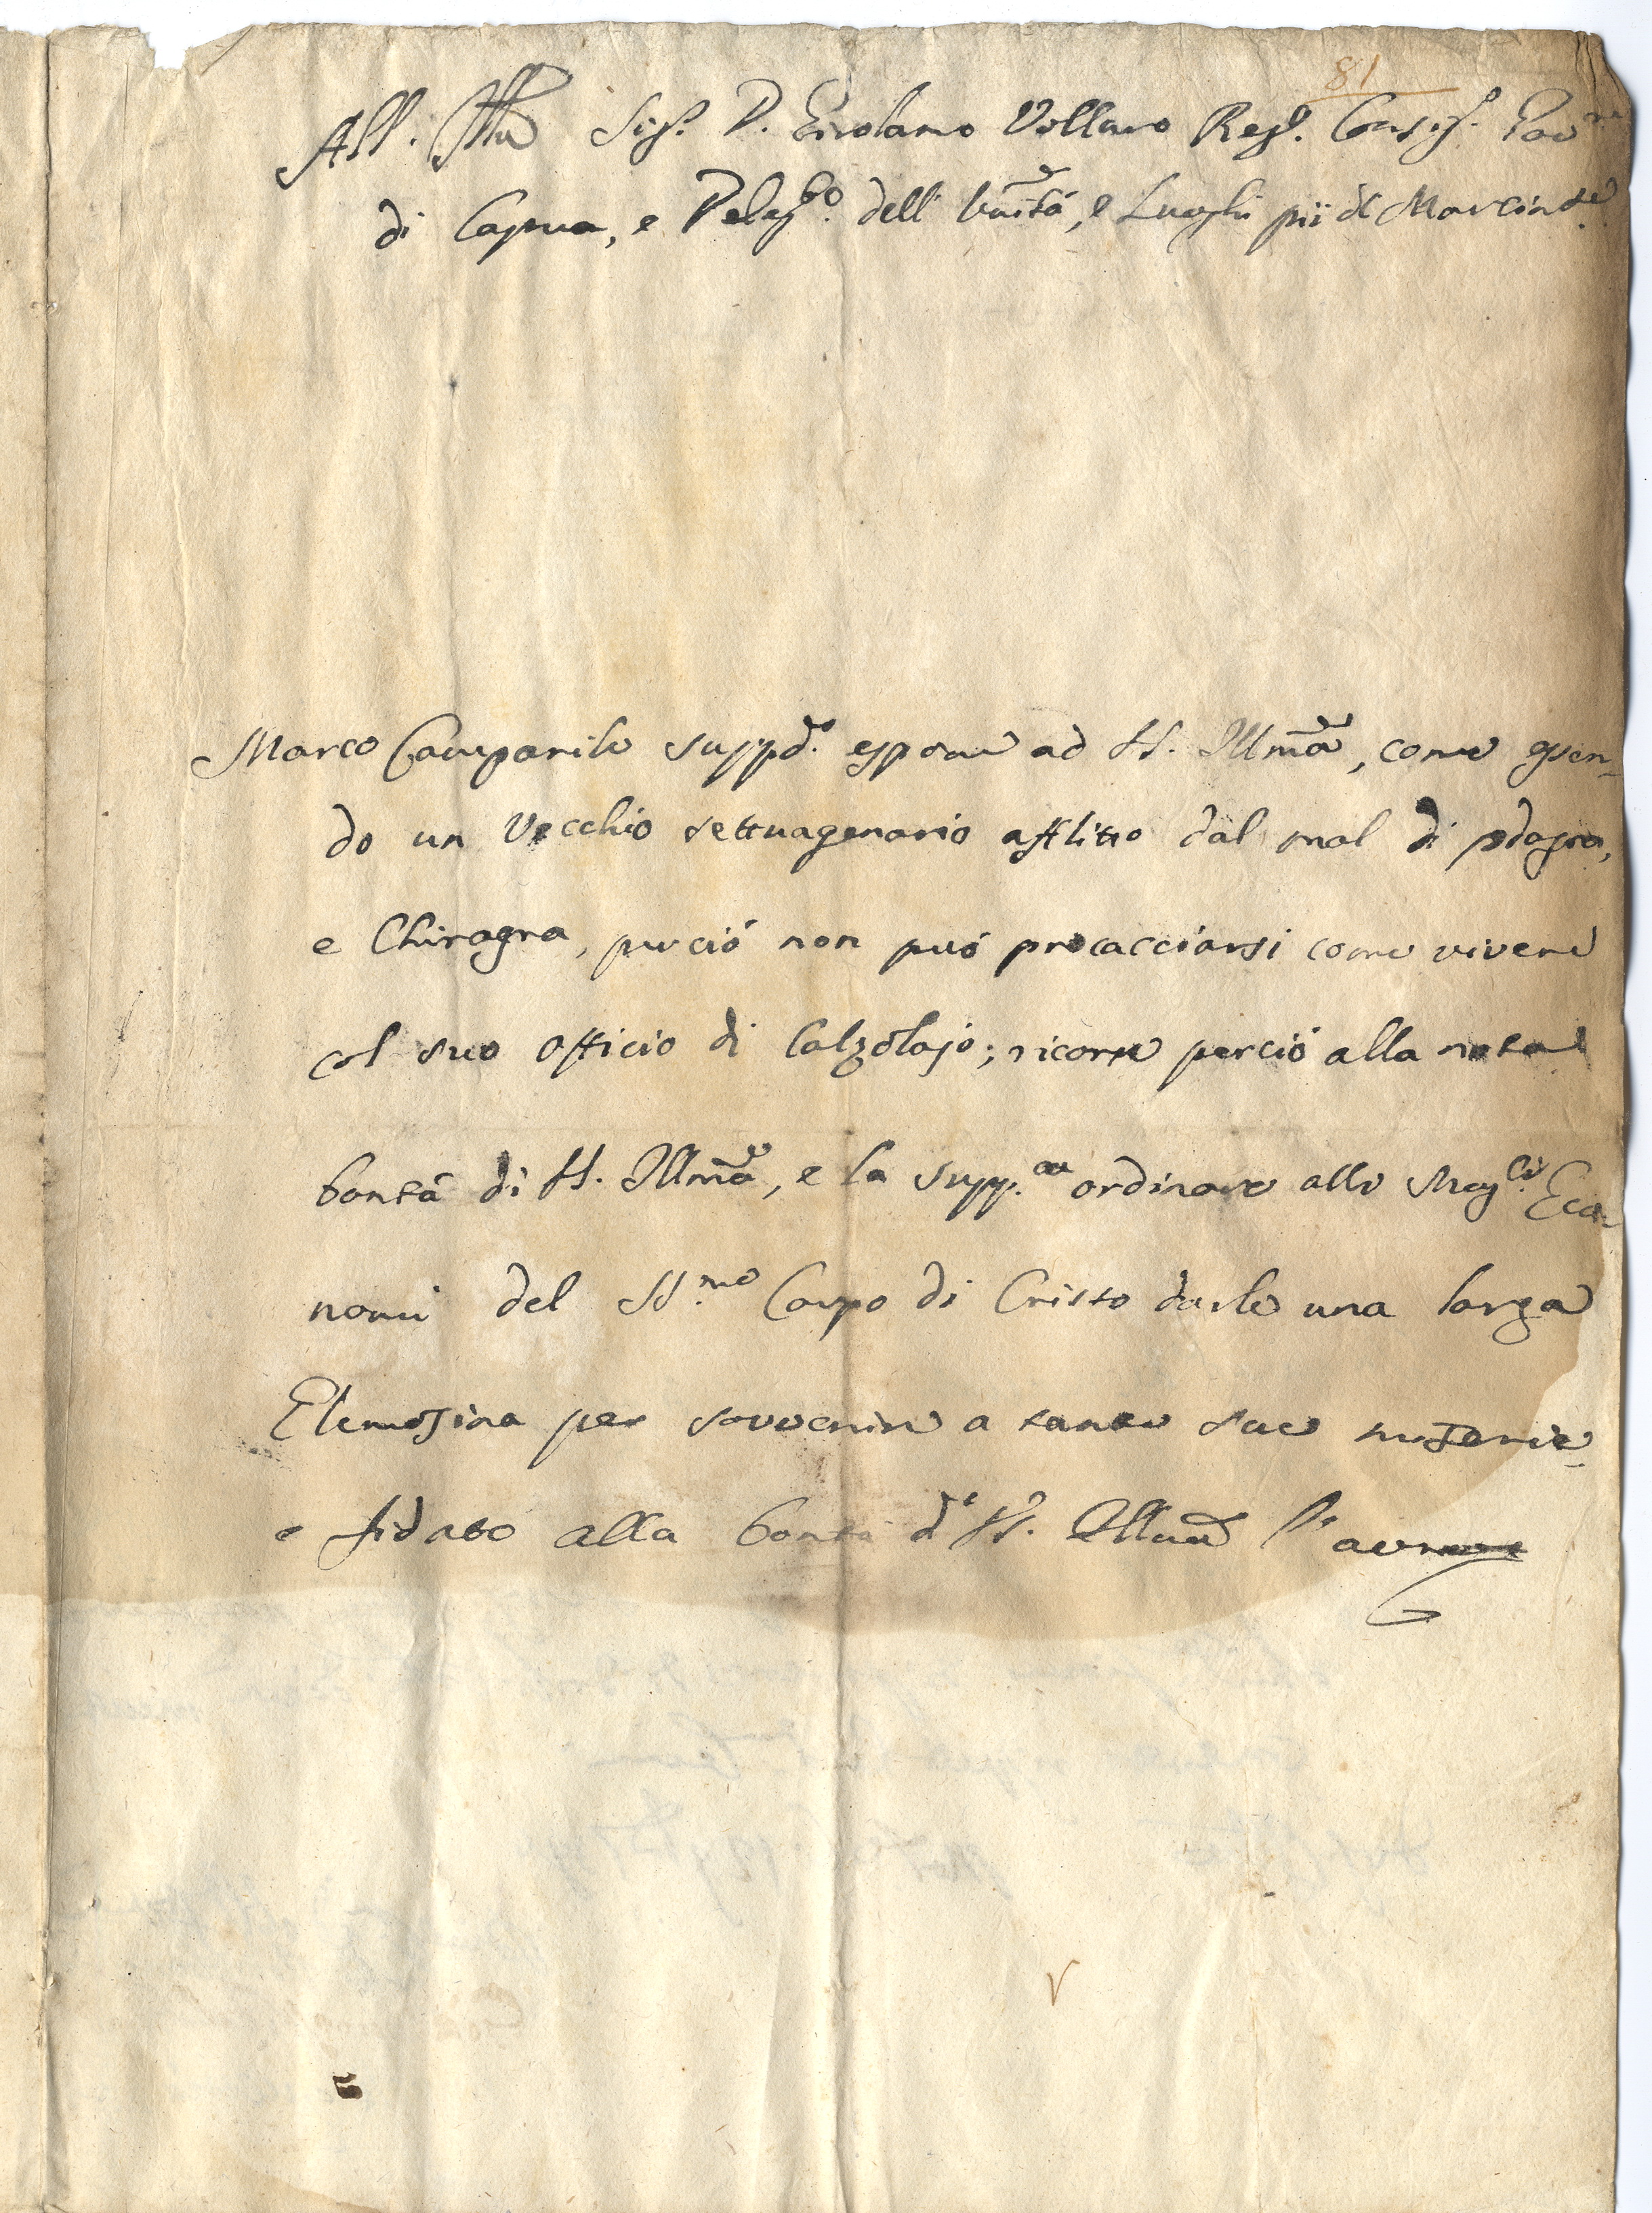 81
All. Ill.mo Sig.r D. Girolamo Vollaro Reg.o Consig.o Gov.re
di Capua, e Deleg.to dell'Un̄ità, e Luoghi pii di Marcin.se
Marco Campanile supp.e espone ad V.S. Ill̄ma, come essen-
do un Vecchio settuagenario afflitto dal mal di podagra,
e Chiragra, perciò non può procacciarsi come vivere
col suo officio di Calzolajo; ricorre perciò alla nota
bontà di V.S. Ill̄ma, e la supp.ca ordinare alli Mag.ci Eco-
nomi del SS.mo Corpo di Cristo darle una larga
Elemosina per sovvenire a tante sue miserie
e fidato alla bontà di V.S. Ill̄ma l'avrà